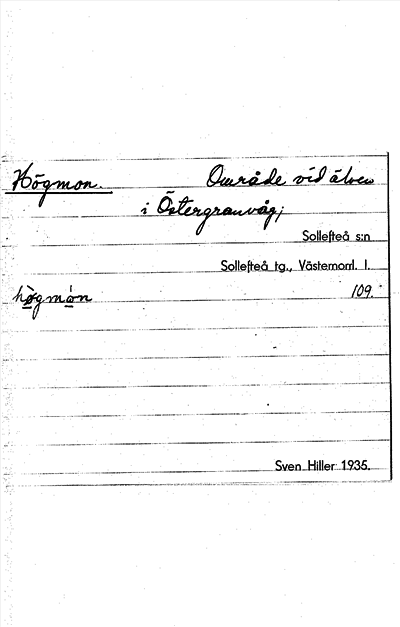 Högmon. Område vid älven
i Östergranvåg;
Sollefteå s:n
Sollefteå tg., Västernorrl. l.
hø̀gmón 109.
Sven Hiller 1935.